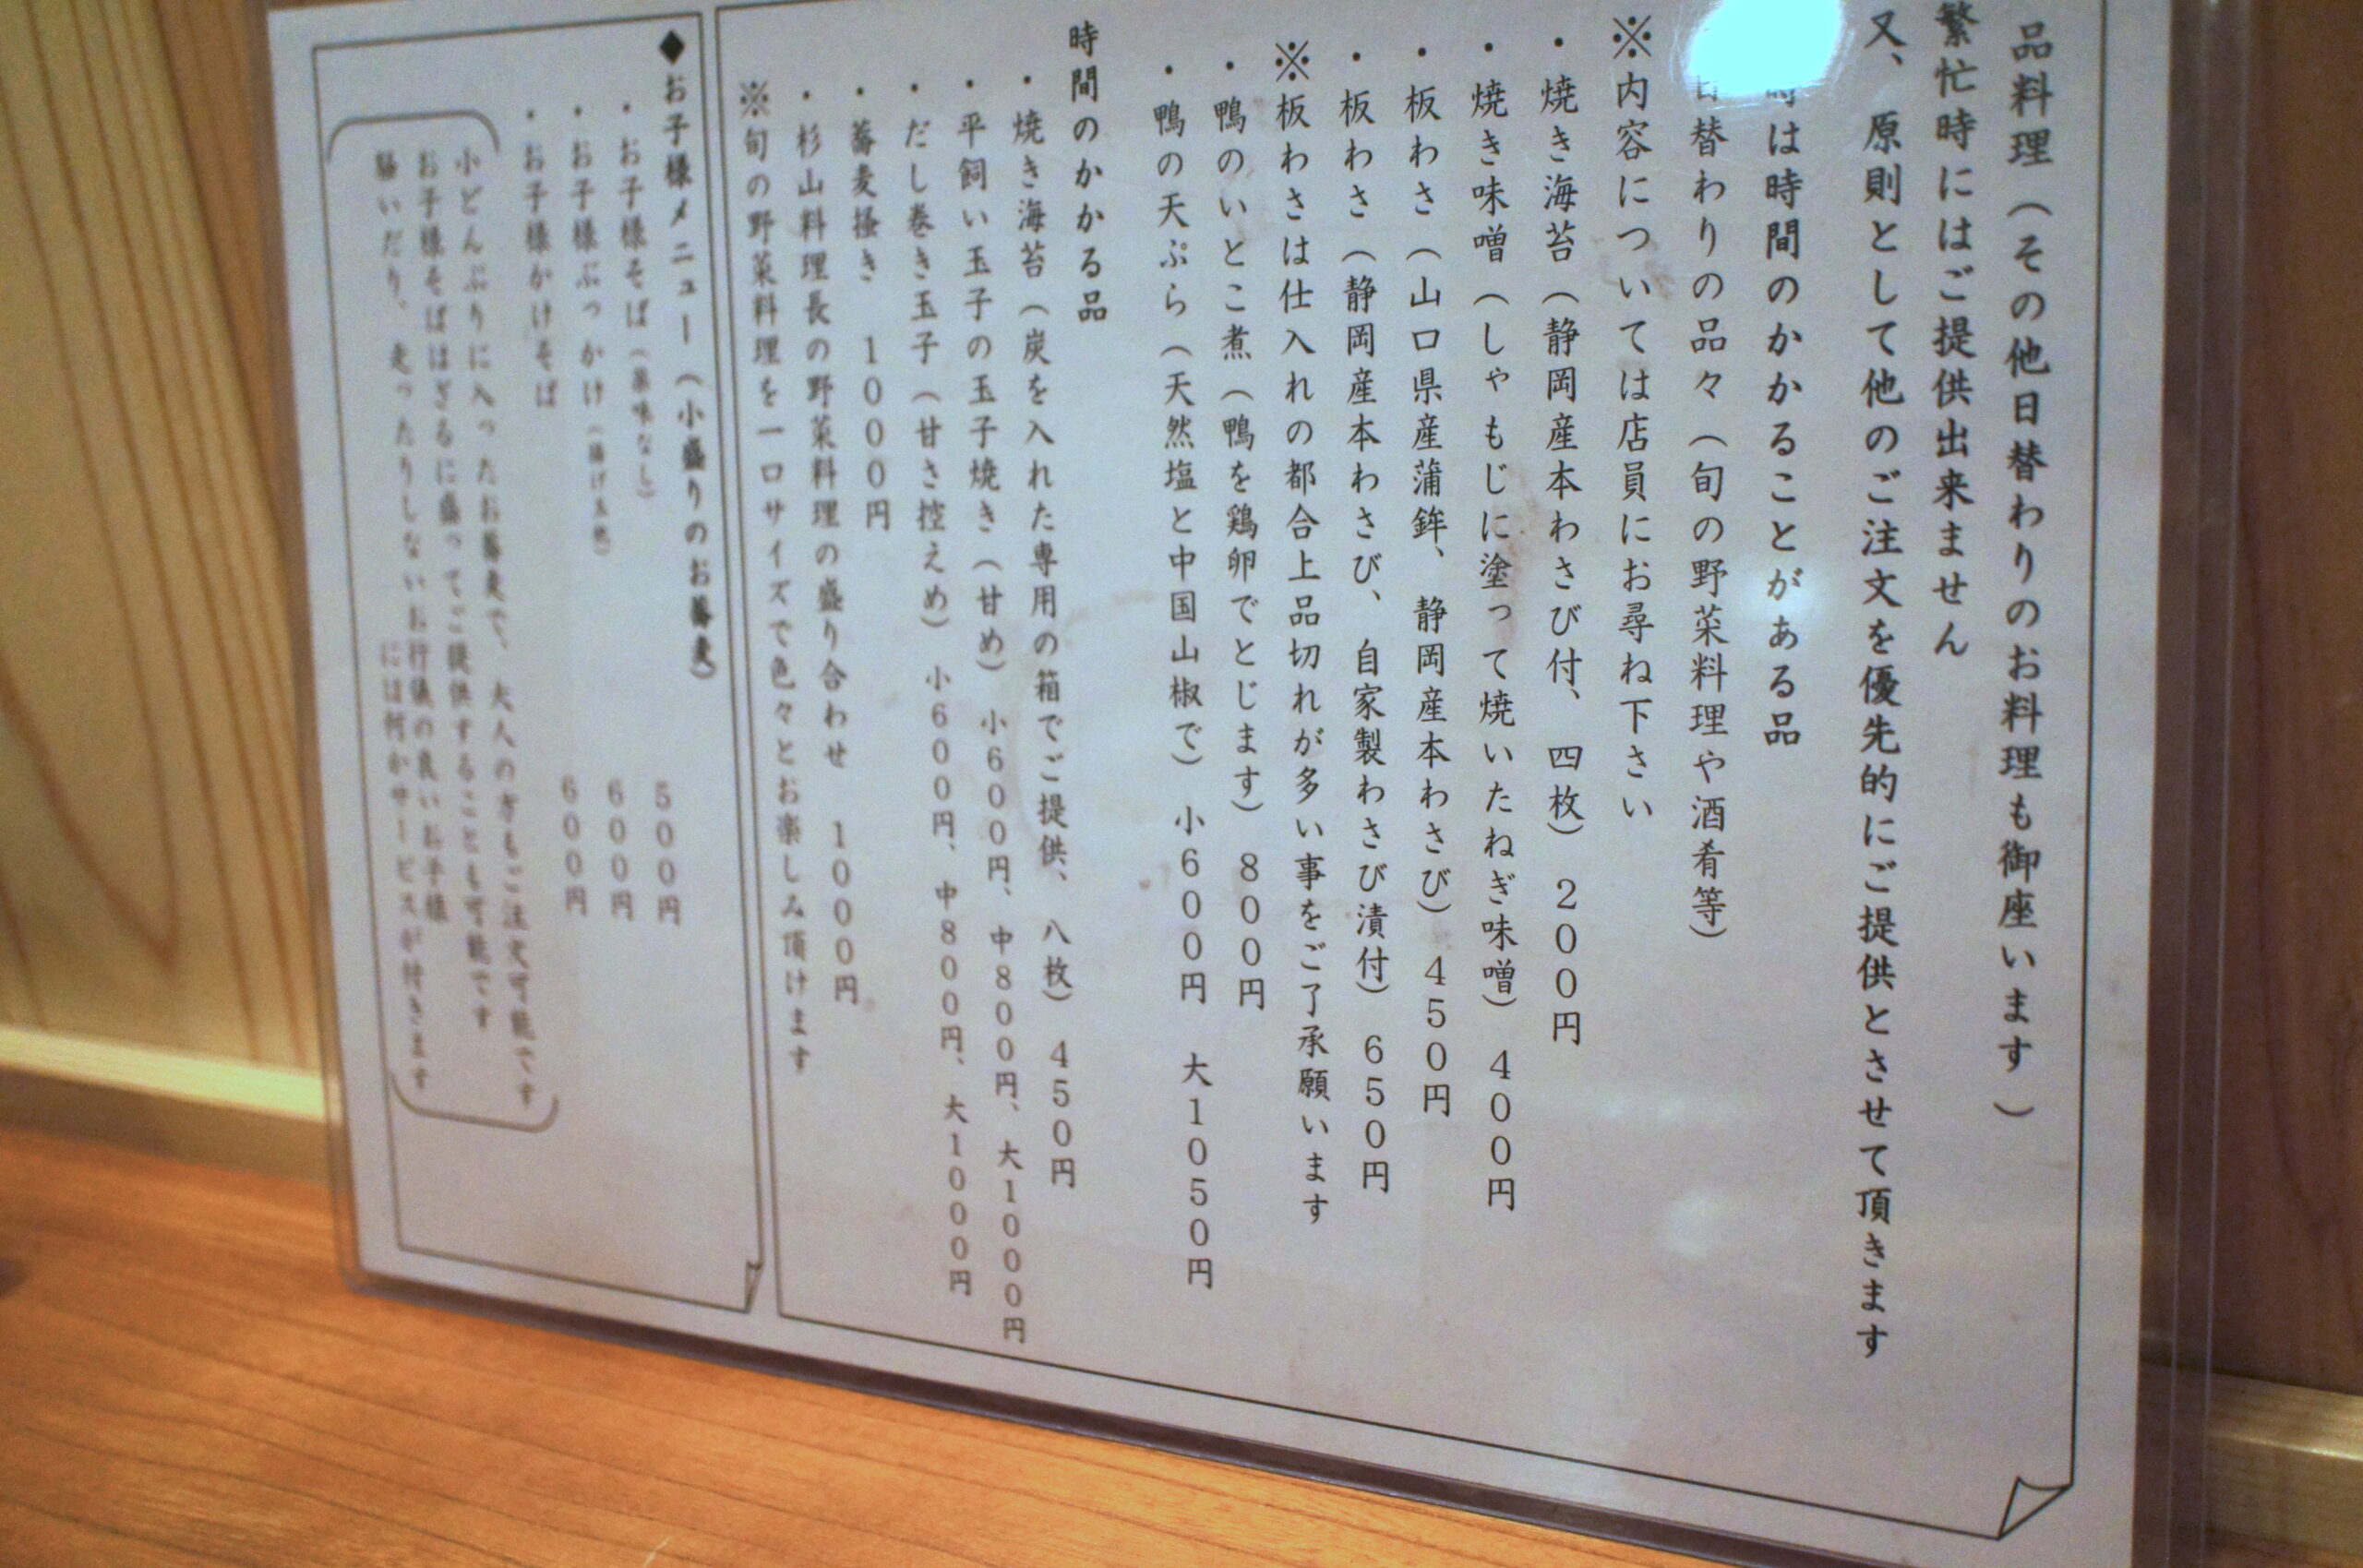 品料理（その他日替わりのお料理も御座います）
繁忙時にはご提供出来ません
又、原則として他のご注文を優先的にご提供とさせて頂きます
は時間のかかることがある品
日替わりの品々（旬の野菜料理や酒肴等）
※内容については店員にお尋ね下さい
・焼き海苔（静岡産本わさび付、四枚）２００円
・焼き味噌（しゃもじに塗って焼いたねぎ味噌）４００円
・板わさ（山口県産蒲鉾、静岡産本わさび）４５０円
・板わさ（静岡産本わさび、自家製わさび漬付）６５０円
※板わさは仕入れの都合上品切れが多い事をご了承願います
・鴨のいとこ煮（鴨を鶏卵でとじます）８００円
・鴨の天ぷら（天然塩と中国山椒で）小６００円　大１０５０円
時間のかかる品
・焼き海苔（炭を入れた専用の箱でご提供、八枚）４５０円
・平飼い玉子の玉子焼き（甘め）小６００円、中８００円、大１０００円
・だし巻き玉子（甘さ控えめ）小６００円、中８００円、大１０００円
・蕎麦掻き　１０００円
・杉山料理長の野菜料理の盛り合わせ　１０００円
※旬の野菜料理を一口サイズで色々とお楽しみ頂けます
◆お子様メニュー（小盛りのお蕎麦）
・お子様そば（薬味なし）５００円
・お子様ぶっかけ（揚げ玉他）６００円
・お子様かけそば　６００円
小どんぶりに入ったお蕎麦で、大人の方もご注文可能です
お子様そばはざるに盛ってご提供することも可能です
騒いだり、走ったりしないお行儀の良いお子様
には何かサービスが付きます